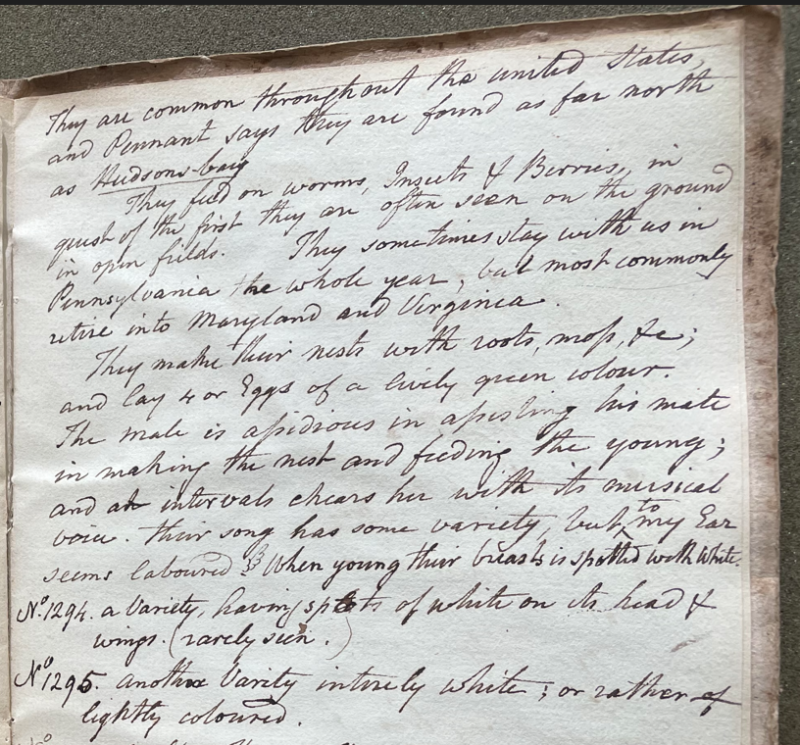 They are common throughout the united States,
and Pennant says they are found as far north
as Hudsons-bay
They feed on worms, Insects & Berries, in
quest of the first they are often seen on the ground
in open fields. They sometimes stay with us in
Pennsylvania the whole year, but most commonly
retire into Maryland and Virginia.
They make their nests with roots, moss, &c;
and lay 4 or Eggs of a lively green colour.
The male is assidious in assisting his mate
in making the nest and feeding the young;
and at intervals chears her with its musical
voice. their song has some variety, but to my Ear
seems laboured When young their breasts is spotted with White.
No. 1294. a Variety, having spots of white on its head &
wings. (rarely seen.)
No 1295. another Varity intirely white; or rather of
lightly coloured.